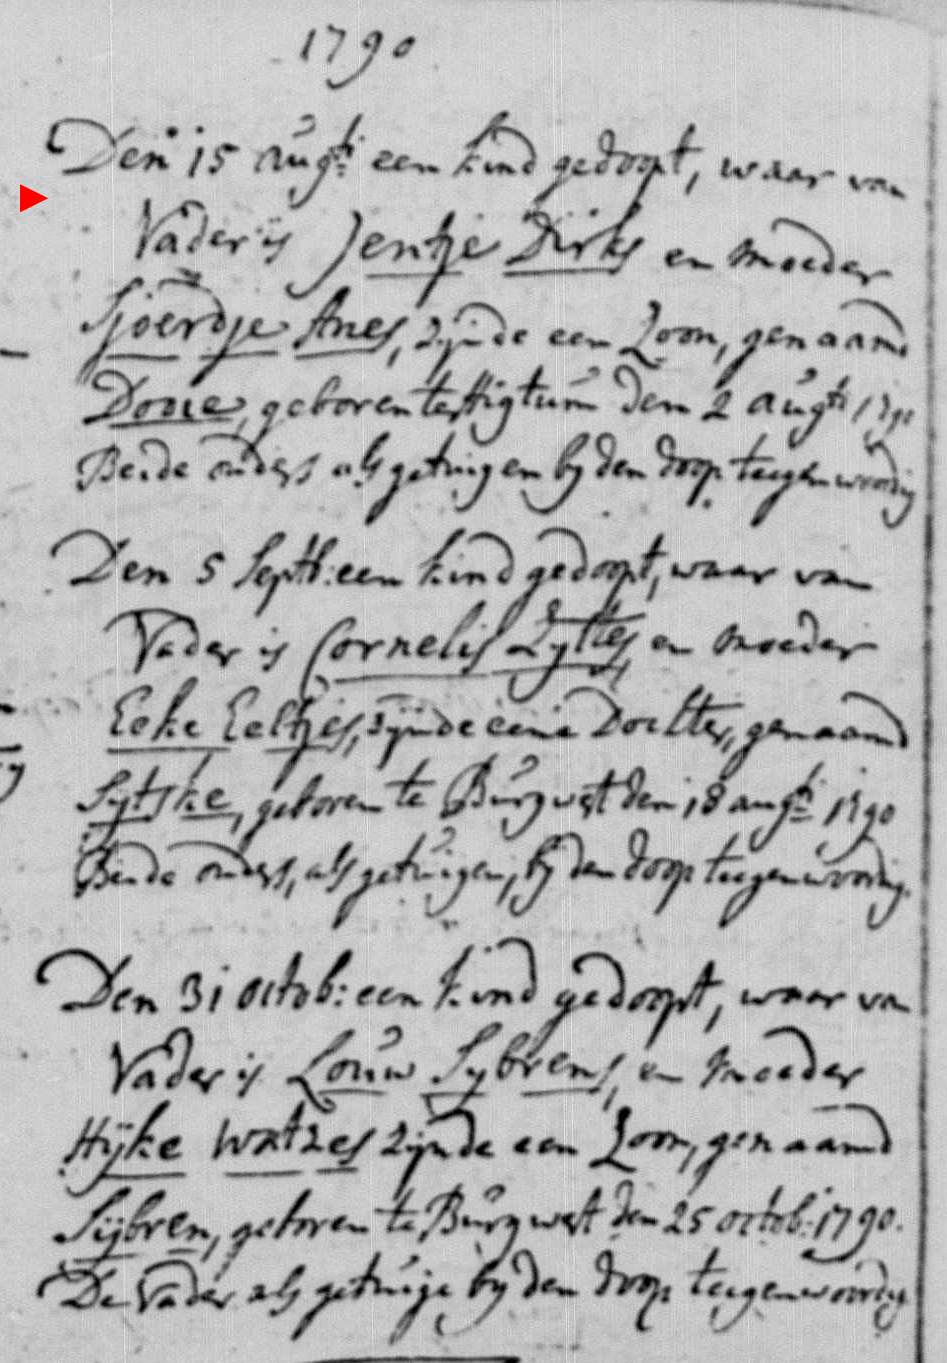 1790
Den 15 augt: een kind gedoopt, waar van
Vader is Jentje Dirks en moeder
Sjoerdje Anes, zijnde een Zoon, genaamd
Douwe, geboren te Higtum den 2 augt: 1790
Beide ouders als getuigen bij den doop teegenwoordig
Den 5 Septb: een kind gedoopt, waar van
Vader is Cornelis Zytses en moeder
Eeke Eeltjes, zijnde eene Dochter, genaamd
Sytske, geboren te Burgwert den 18 augt: 1790
Beide ouders, als getuigen, bij den doop teegenwoordig.
Den 31 octob: een kind gedoopt, waar van
Vader is Louw Sybrens, en moeder
Hijke Watzes zijnde een Zoon, genaamd
Sijbren, geboren te Burgwert den 25 octob: 1790.
De Vader als getuige bij den doop teegenwoordig